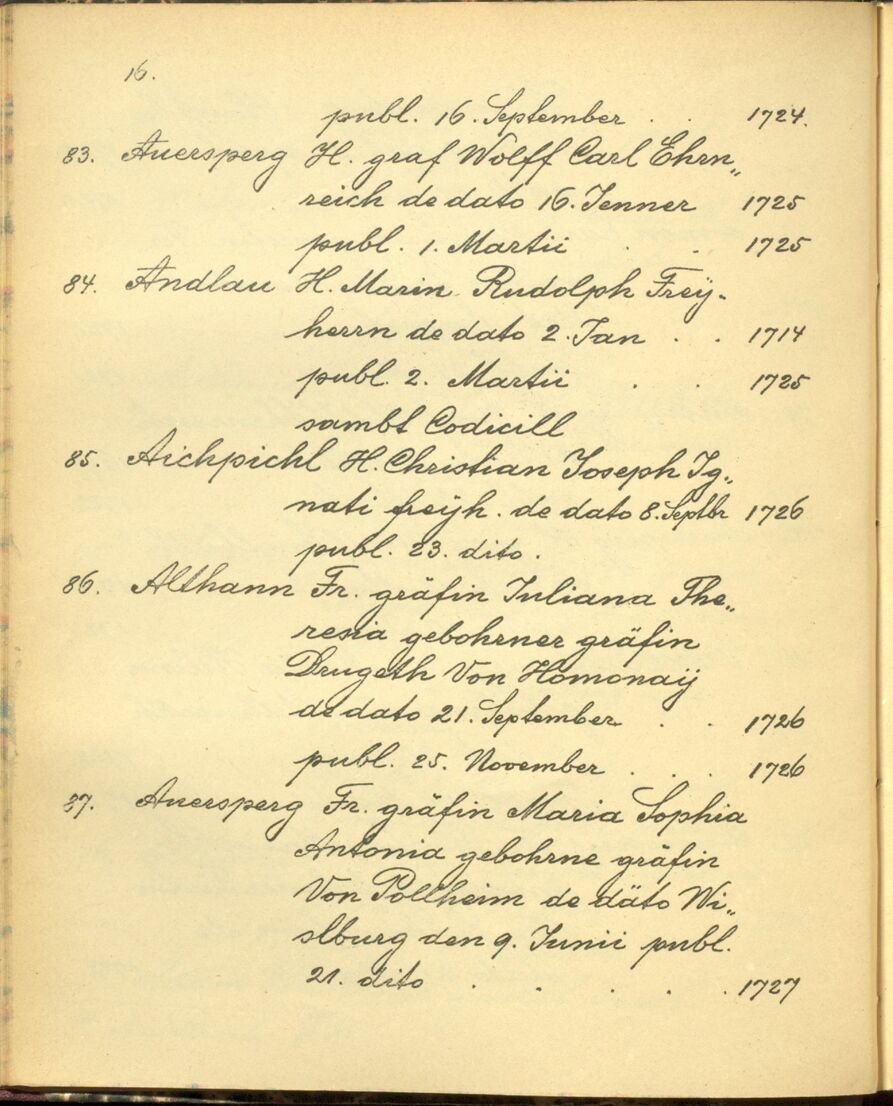 16.
publ. 16. September . . 1724.
83. Auersperg H. graf Wolff Carl Ehrn„
reich de dato 16. Jenner 1725
publ. 1. Martii . . 1725
84. Andlau H. Marin Rudolph Freÿ-
herrn de dato 2. Jan . . 1714
publ. 2. Martii . . 1725
sambt Codicill
85. Aichpichl H. Christian Joseph Ig„
nati freÿh. de dato 8. Septbr 1726
publ. 23. dito.
86. Althann Fr. gräfin Juliana The„
resia gebohrner gräfin
Drugeth Von Homonaÿ
de dato 21. September . . 1726
publ. 25. November . . . 1726
87. Auersperg Fr. gräfin Maria Sophia
Antonia gebohrne gräfin
Von Pollheim de däto Wi„
slburg den 9. Junii publ.
21. dito . . . . . 1727